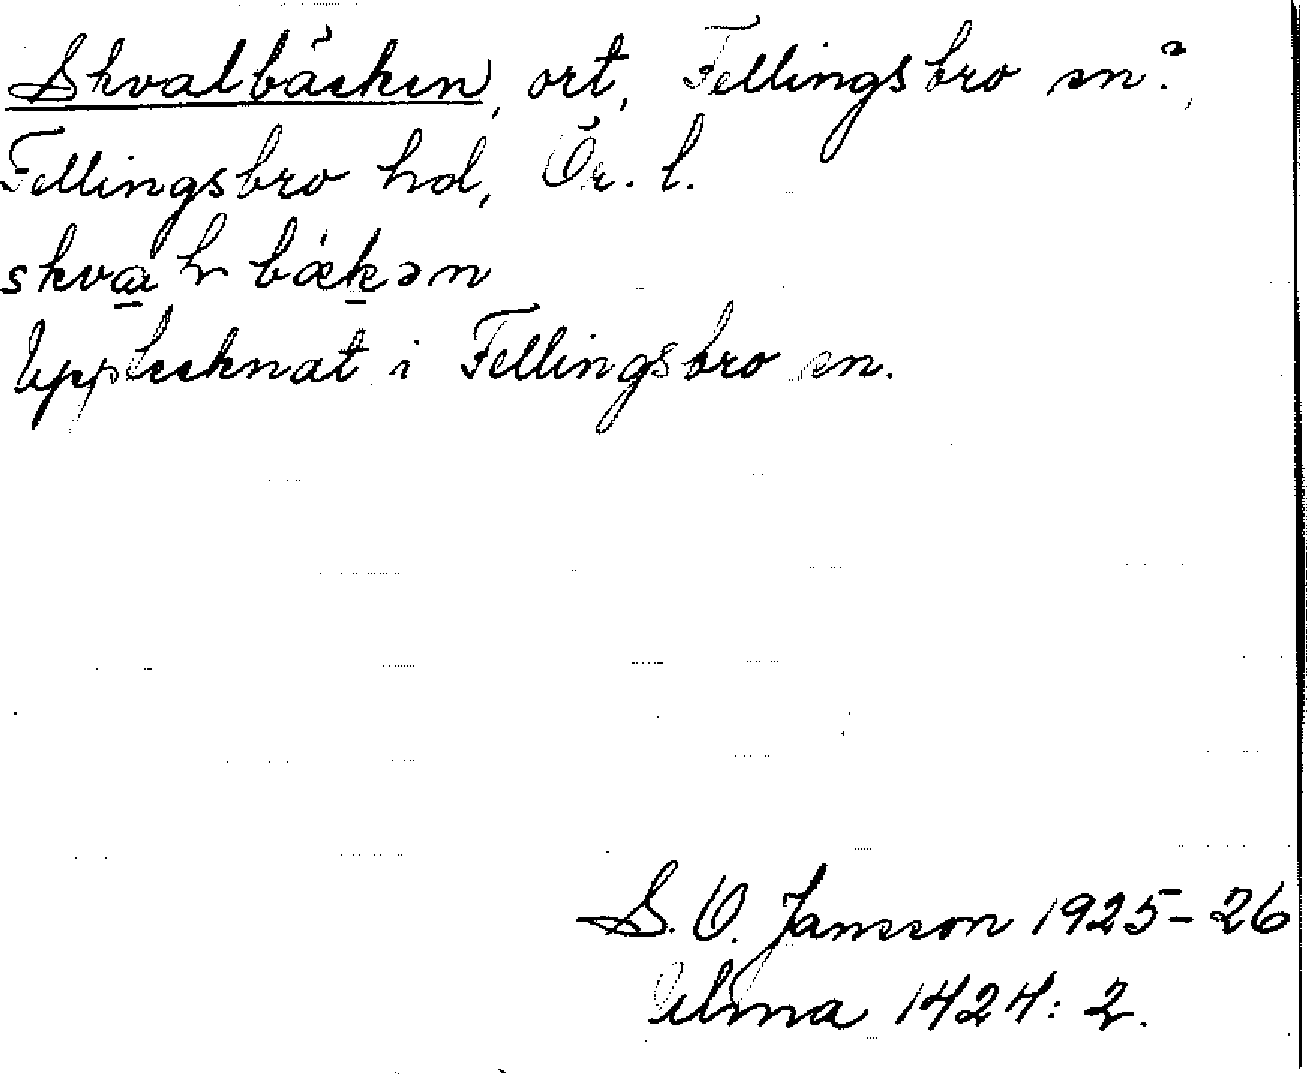 Skvalbäcken, ort, Fellingsbro sn?,
Fellingsbro hd, Ör. l.
bäkən
Upptecknat i Fellingsbro sn.
S. O. Jansson 1925-26
Ulma 1424: 2.